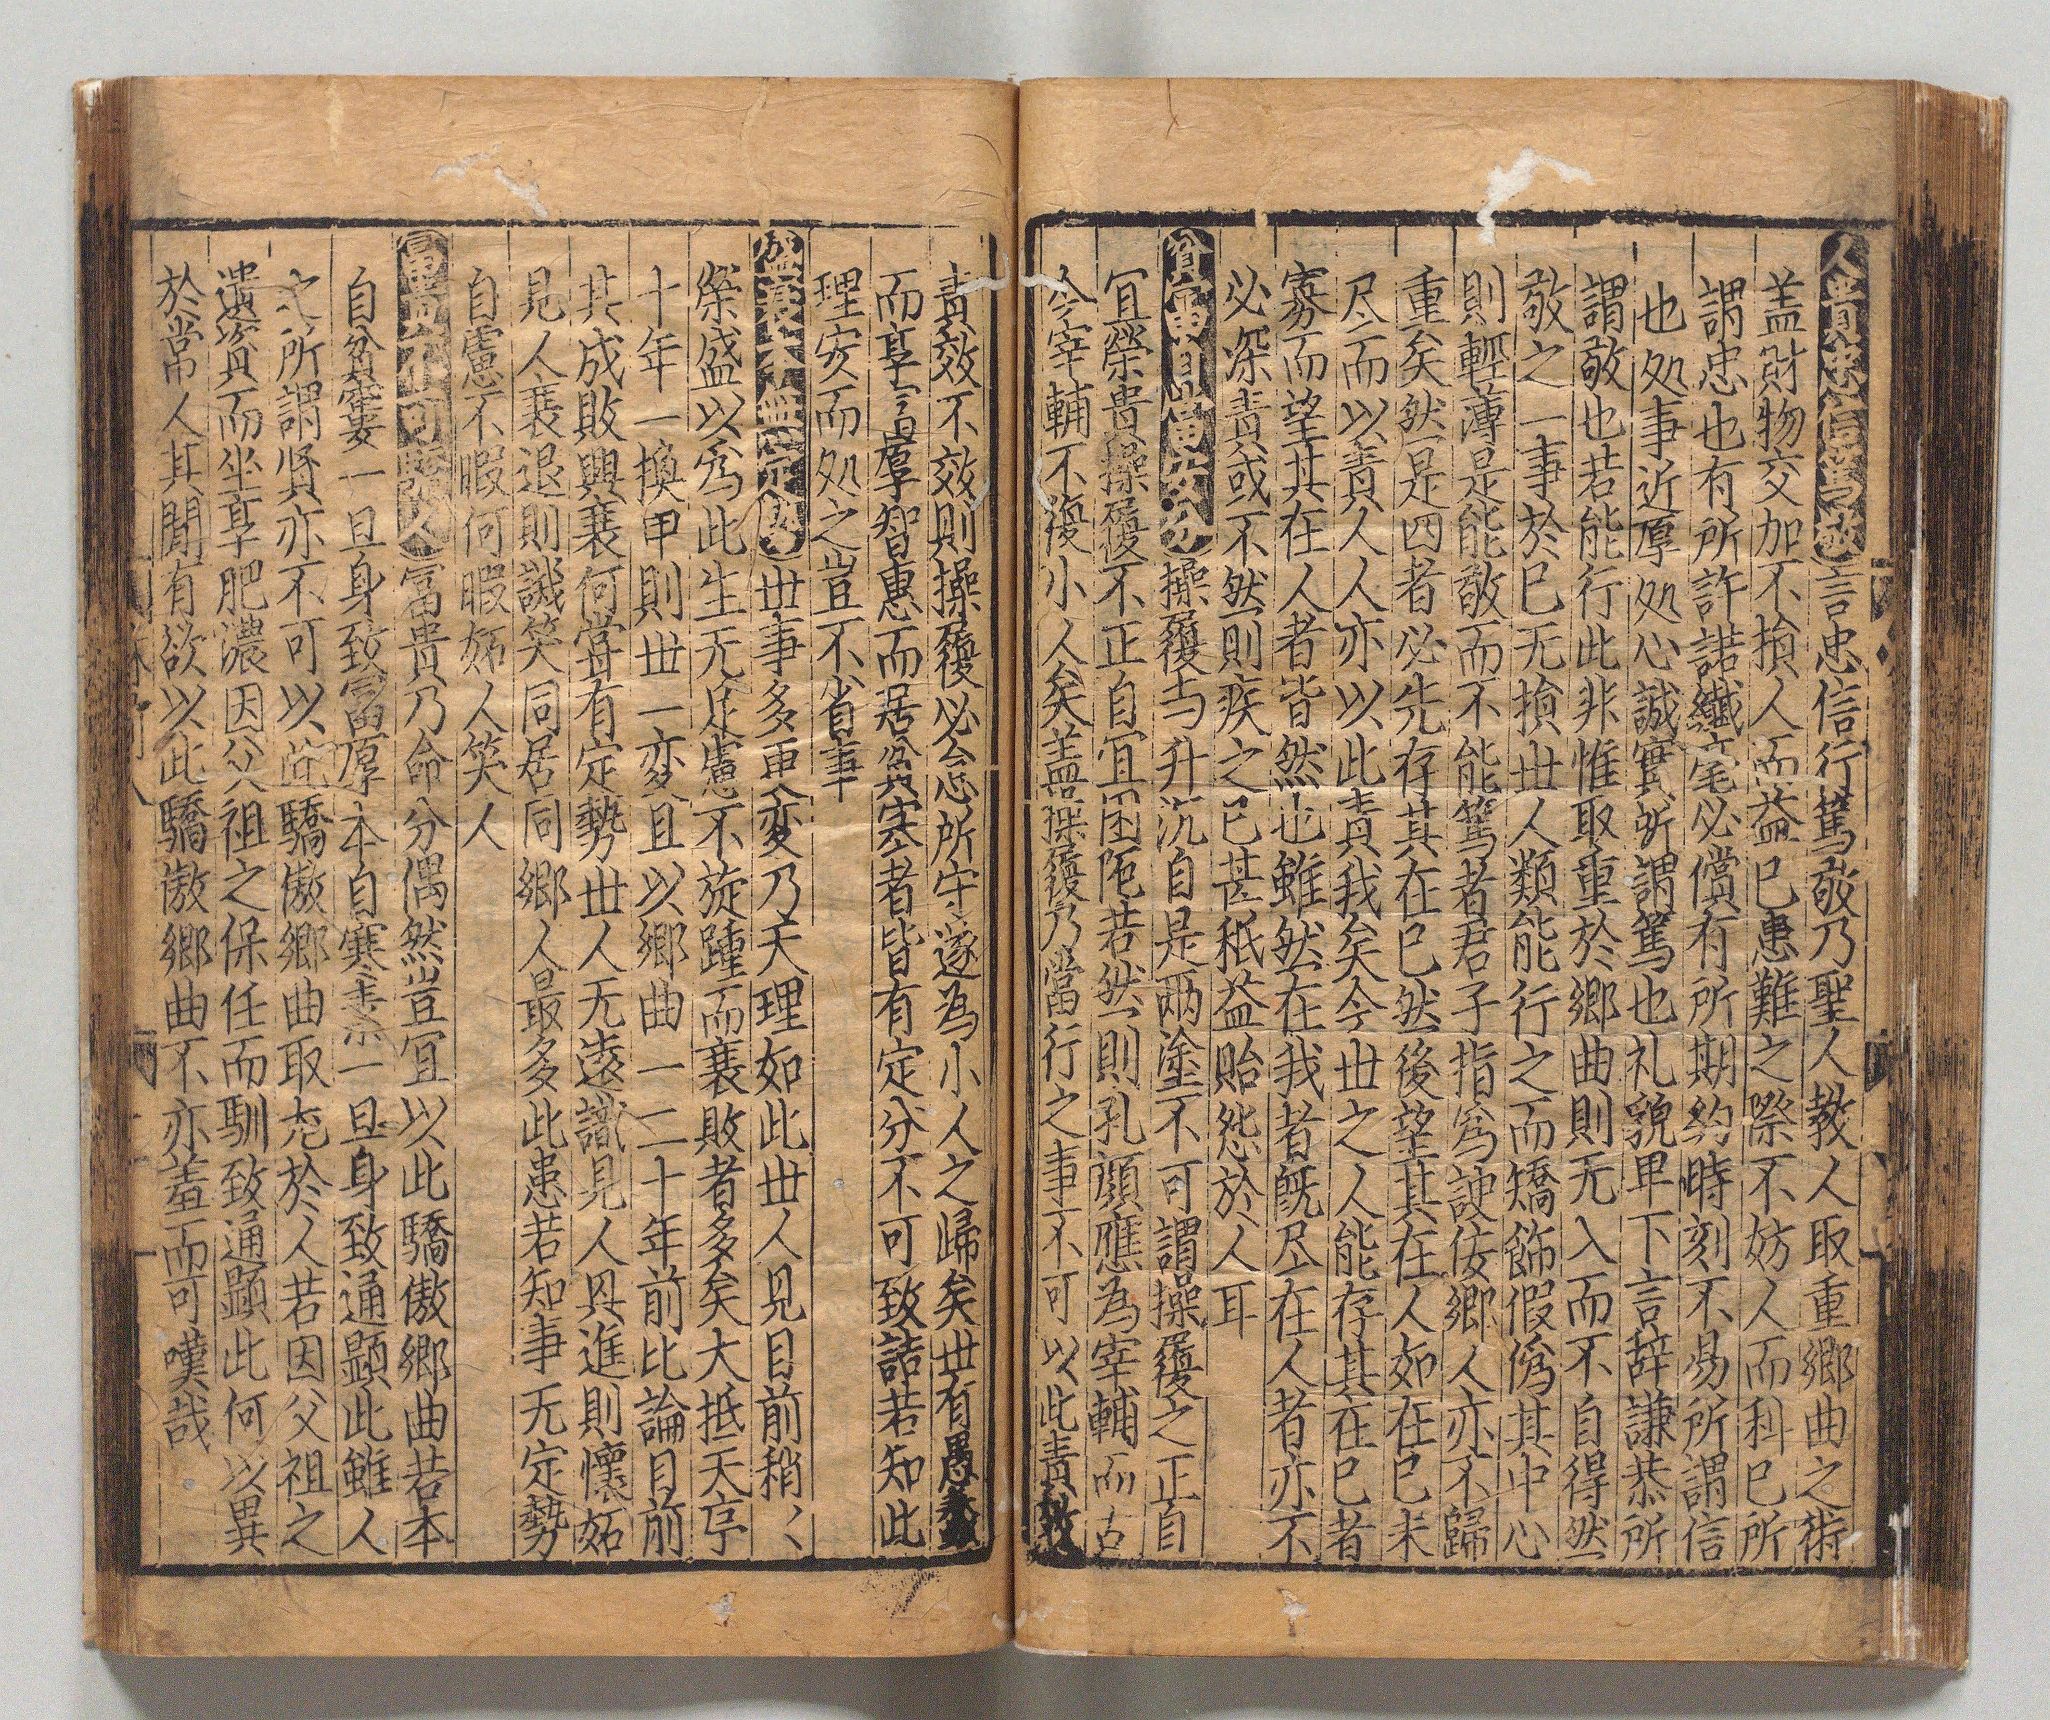 人貴忠信篤敬言忠信行篤敬乃聖人教人取重鄉曲之術
盖財物交加不損人而益已患難之際不妨人而利已所
謂忠也有所許諾纖毫必償有所期約時刻不易所謂信
也処事近厚処心誠實所謂篤也礼貌卑下言辞謙恭所
謂敬也若能行此非惟取重於鄉曲則无入而不自得然
敬之一事於已无損世人類能行之而矯飾假僞其中心
則輕薄是能敬而不能篤者君子指爲諛佞鄉人亦不歸
重矣然是四者必先存其在已然後望其在人如在已未
尽而以責人人亦以此責我矣今世之人能存其在已者
寡而望其在人者皆然也雖然在我者既尽在人者亦不
必深責或不然則疾之已甚秖益貽怨於人耳
操履与升沉自是兩塗不可謂操履之正自
宜榮貴操履不正自宜困陁若然則孔顏應為宰輔而古
今宰輔不復小人矣盖操履乃當行之事不可以此責效
責效不效則操履必怠所守遂為小人之歸矣世有愚蠢
而享富厚智惠而居貧寒者皆有定分不可致詰若知此
理安而処之豈不省事
世事多更変乃天理如此世人見目前稍〻
榮盛以爲此生无足慮不旋踵而衰敗者多矣大抵天序
十年一換甲則世一変且以鄉曲一二十年前比論目前
其成敗興衰何甞有定勢世人无逺識見人興進則懷妬
見人衰退則譏笑同居同鄉人最多此患若知事无定勢
自慮不暇何暇妬人笑人
富貴乃命分偶然豈宜以此驕傲鄉曲若本
自貧窶一旦身致富厚本自寒素一旦身致通顯此雖人
之所謂贤亦不可以此驕傲鄉曲取尤於人若因父祖之
遺資而坐享肥濃因父祖之保任而馴致通顯此何以異
於常人其間有欲以此驕傲鄉曲不亦羞而可嘆哉